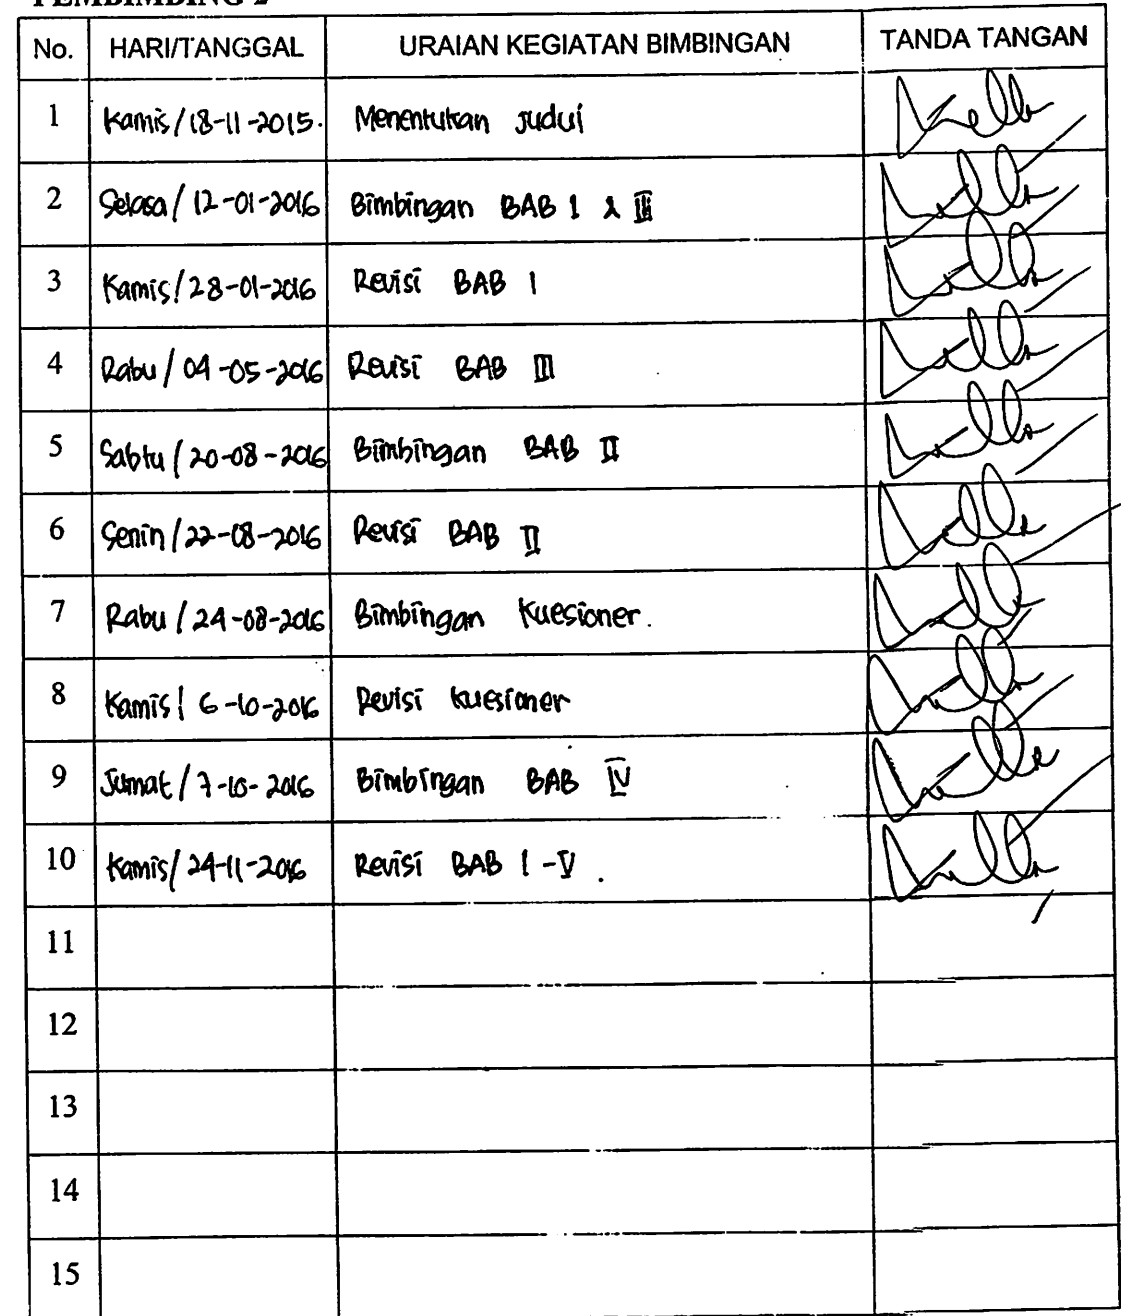 PEMBIMBING 2
No. HARI/TANGGAL URAIAN KEGIATAN BIMBINGAN TANDA TANGAN
1 Kamis/18-11-2015. Menentukan Judul
2 Selasa/12-01-2016 Bimbingan BAB I & III
3 Kamis/28-01-2016 Revisi BAB I
4 Rabu/04-05-2016 Revisi BAB III
5 Sabtu/20-08-2016 Bimbingan BAB II
6 Senin/22-08-2016 Revisi BAB II
7 Rabu/24-08-2016 Bimbingan Kuesioner.
8 Kamis/6-10-2016 Revisi Kuesioner
9 Jumat/7-10-2016 Bimbingan BAB IV
10 Kamis/24-11-2016 Revisi BAB I-V.
11
12
13
14
15